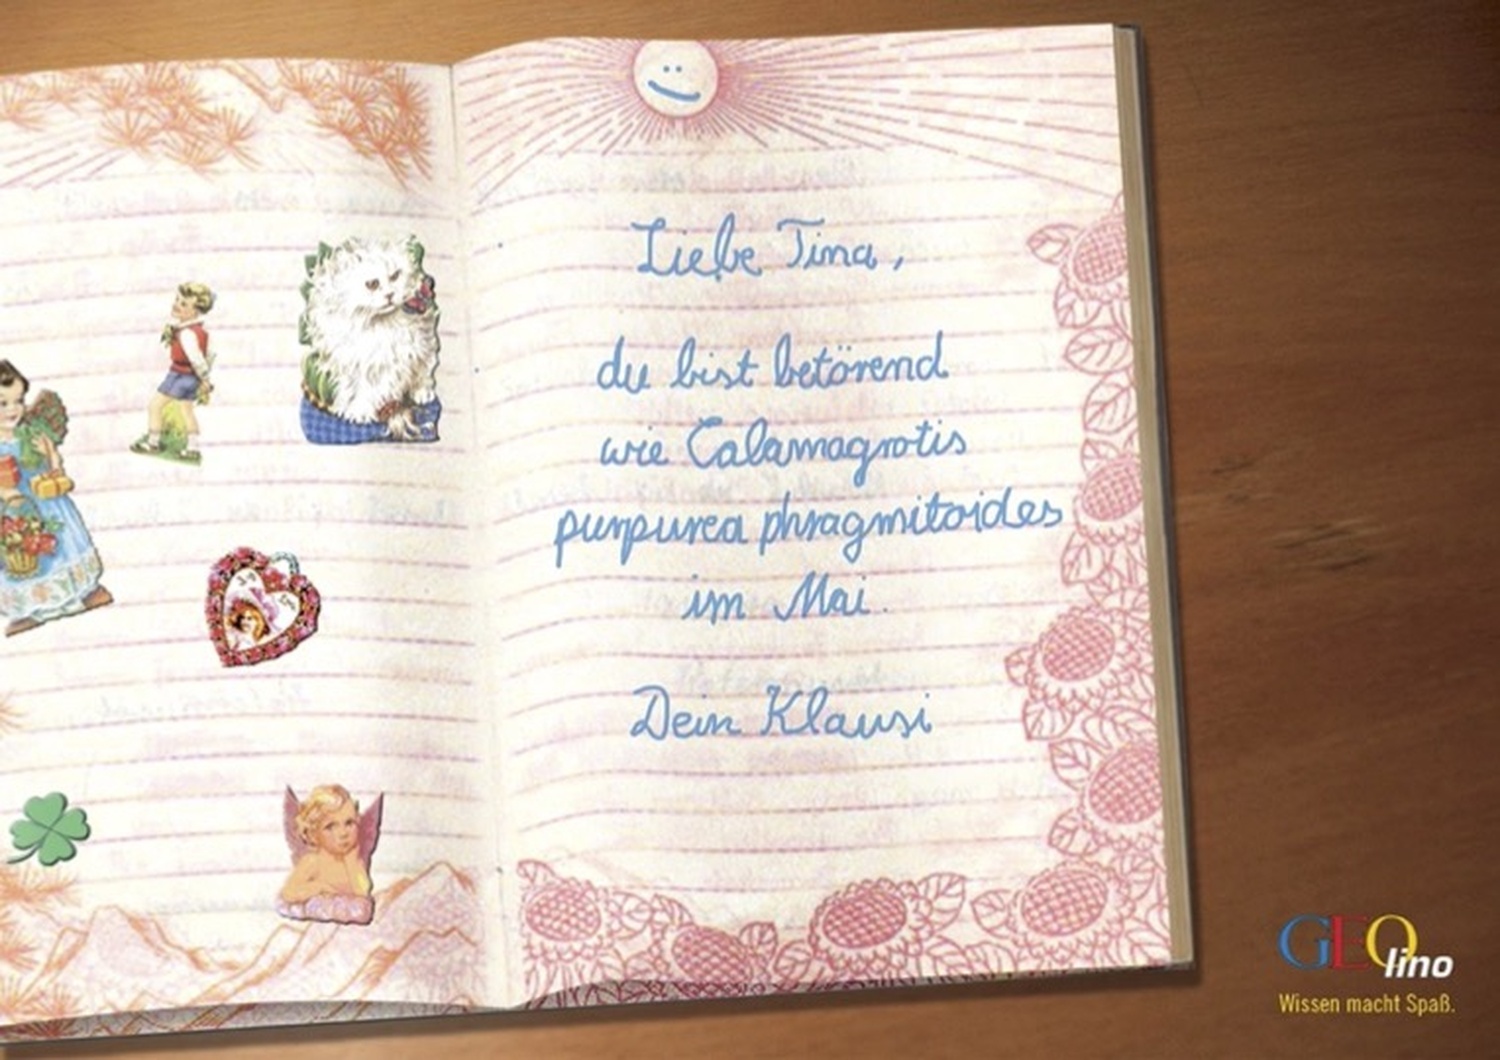 Liebe Tina,
du bist betörend
wie Calamagrotis
purpurea phragmitoides
im Mai.
Dein Klausi
GEOlino
Wissen macht Spaß.